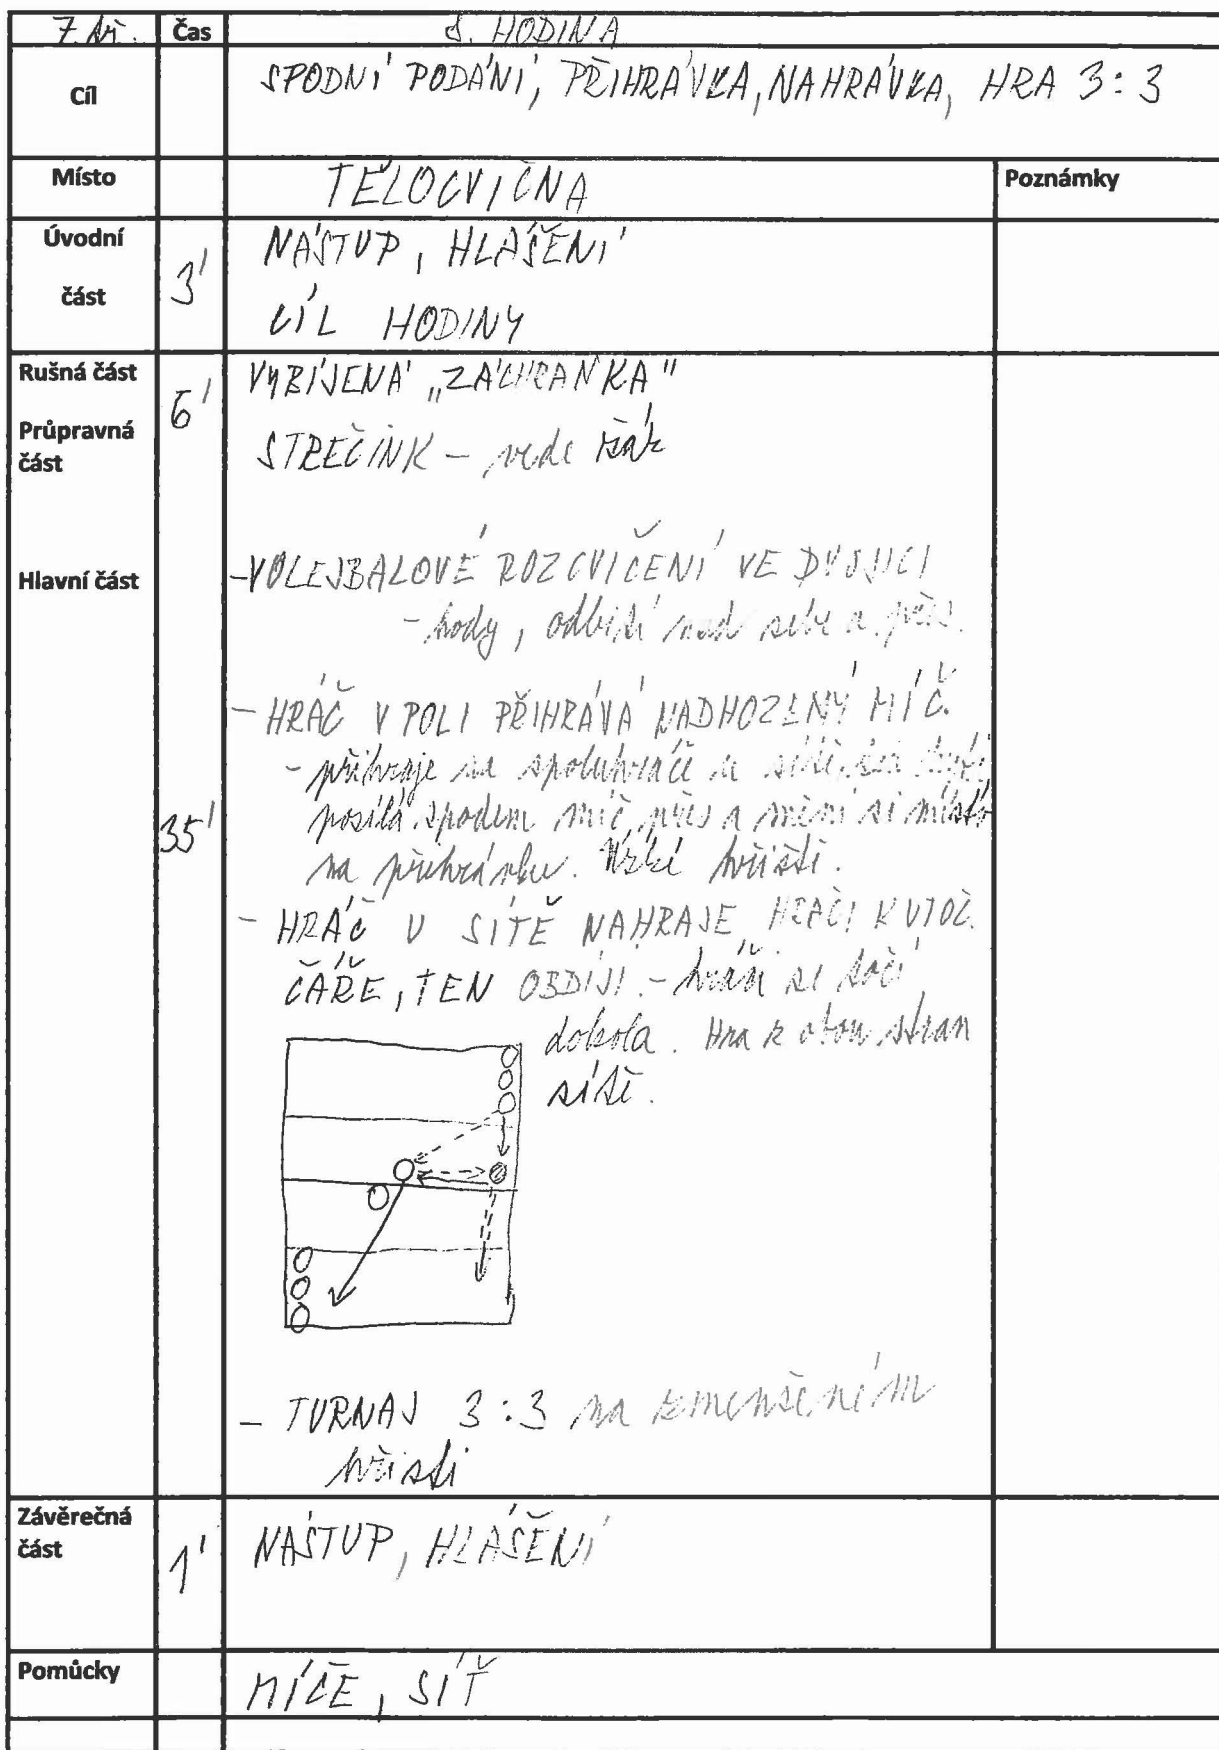 7. tř. Čas HODINA
Cíl SPODNÍ PODÁNÍ, PŘIHRÁVKA, NAHRÁVKA, HRA 3:3
Místo TĚLOCVIČNA Poznámky
Úvodní část 3' NÁSTUP, HLÁŠENÍ
CÍL HODINY
Rušná část VYBÍJENÁ „ZÁCHRANKA"
Průpravná část 6' STREČINK – vede žák
Hlavní část 35' -VOLEJBALOVÉ ROZCVIČENÍ VE DVOJICI
- hody, odbití nad sebe a přes.
- HRÁČ V POLI PŘIHRÁVÁ NADHOZENÝ MÍČ.
- přihraje na spoluhráče u sítě,
posílá spodem míč přes a mění si místo
na přihrávku. hřiště.
- HRÁČ U SÍTĚ NAHRAJE HRÁČI K ÚTOČ.
ČÁŘE, TEN ODBÍJÍ. - hráči se točí
dokola. Hra z obou stran
sítě.
- TURNAJ 3:3 na zmenšeném
hřišti
Závěrečná část 1' NÁSTUP, HLÁŠENÍ
Pomůcky MÍČE, SÍŤ